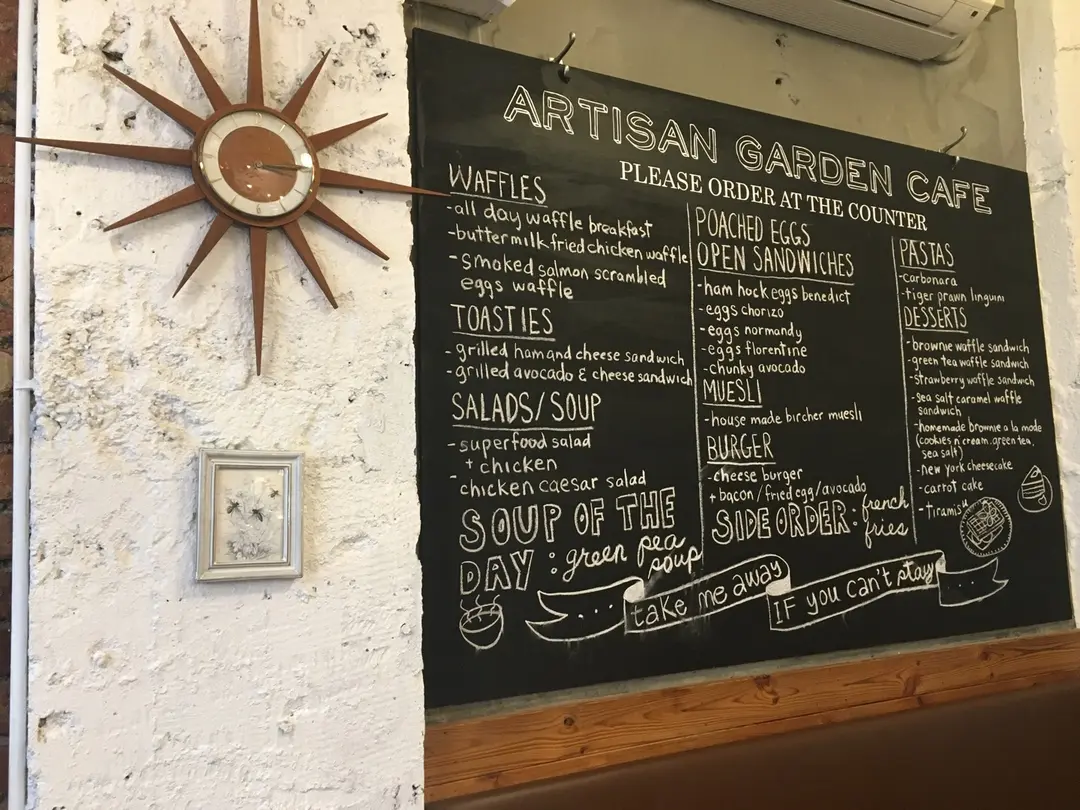 ARTISAN GARDEN CAFE
PLEASE ORDER AT THE COUNTER
WAFFLES
-all day waffle breakfast
-buttermilk fried chicken waffle
-smoked salmon scrambled
eggs waffle
TOASTIES
-grilled ham and cheese sandwich
-grilled avocado & cheese sandwich
SALADS/SOUP
-superfood salad
+ chicken
-chicken caesar salad
SOUP OF THE
DAY : green pea
soup
POACHED EGGS
OPEN SANDWICHES
-ham hock eggs benedict
-eggs chorizo
-eggs normandy
-eggs florentine
-chunky avocado
MUESLI
-house made bircher muesli
BURGER
-cheese burger
+bacon/fried egg/avocado
SIDE ORDER: french
fries
PASTAS
-carbonara
-tiger prawn linguini
DESSERTS
-brownie waffle sandwich
-green tea waffle sandwich
-strawberry waffle sandwich
-sea salt caramel waffle
sandwich
-homemade brownie a la mode
(cookies n' cream, green tea,
sea salt)
-new york cheesecake
-carrot cake
-tiramisu
... take me away
IF you can't stay